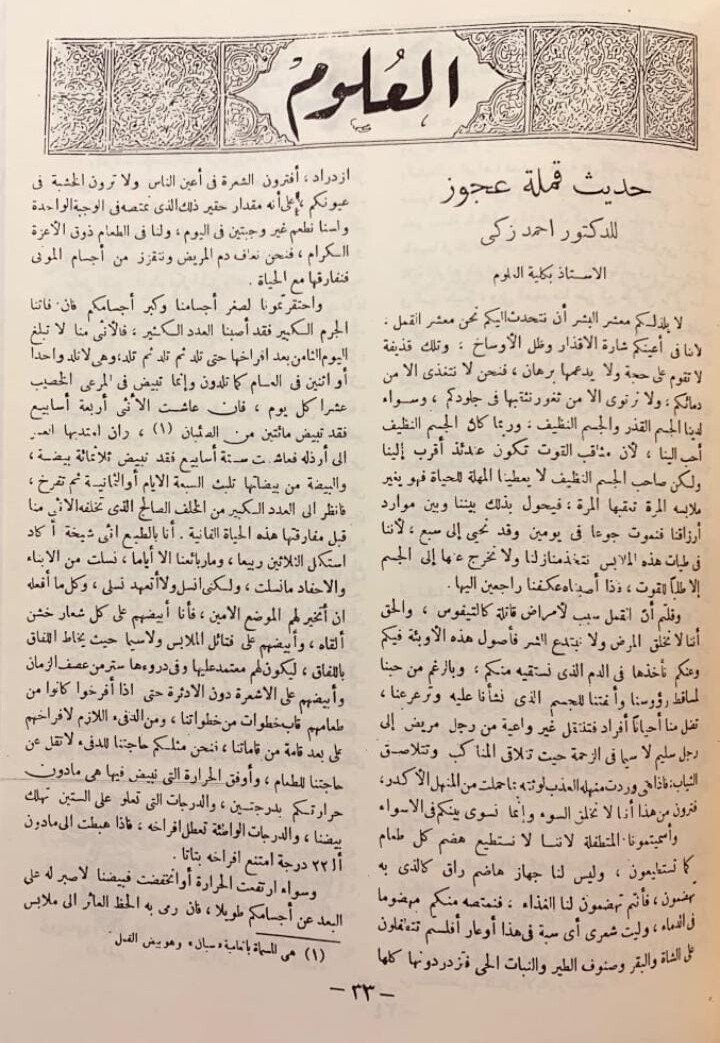 العلوم
حديث قملة عجوز
للدكتور احمد زكى
الاستاذ بكلية العلوم
لا يلذ لكم معشر البشر أن نتحدث اليكم نحن معشر القمل .
لأننا فى أعينكم شارة الأقذار وظل الأوساخ ، وتلك قذيفة
لا تقوم على حجة ولا يدعمها برهان ، فنحن لا نتغذى الا من
دمائكم ، ولا نرتوى الا من ثغور نثقبها فى جلودكم ، وسواء
لدينا الجسم القذر والجسم النظيف . وربما كان الجسم النظيف
أحب الينا ، لأن مثاقب القوت تكون عندئذ أقرب إلينا
ولكن صاحب الجسم النظيف لا يعطينا المهلة للحياة فهو يغير
ملابسه المرة تعقبها المرة ، فيحول بذلك بيننا وبين موارد
أرزاقنا فنموت جوعا فى يومين وقد نحيى إلى سبع ، لأننا
فى طيات هذه الملابس نتخذ منازلنا ولا نخرج عنها إلى الجسم
إلا طلبا للقوت ، فاذا أصبناه عكفنا راجعين اليها .
وقلتم أن القمل سبب لأمراض قاتلة كالتيفوس ، والحق
أننا لا نخلق المرض ولا نبتدع الشر فأصول هذه الأوبئة فيكم
وعنكم نأخذها فى الدم الذى نستقيه منكم ، وبالرغم من حبنا
لمساقط رؤوسنا وألفتنا للجسم الذى نشأنا عليه وترعرعنا ،
تضل منا أحيانا أفراد فتنتقل غير واعية من رجل مريض إلى
رجل سليم لا سيما فى الزحمة حيث تتلاقى المناكب وتتلاصق
الثياب ، فاذا هى وردت منهله العذب لوثته بما حملت من المنهل الأكدر ،
فترون من هذا أننا لا نخلق السوء وإنما نسوى بينكم فى الاسواء
وأسميتمونا المتطفلة لأننا لا نستطيع هضم كل طعام
كما تستطيعون ، وليس لنا جهاز هاضم راق كالذى به
تهضمون ، فأنتم تهضمون لنا الغذاء ، فنمتصه منكم مهضوما
فى الدماء ، وليت شعرى أى سبة فى هذا أو عار أفلستم تتطفلون
على الشاة والبقر وصنوف الطير والنبات الحى فتزدردونها كلها
ازدراد ، أفترون الشعرة فى أعين الناس ولا ترون الخشبة فى
عيونكم ، على أنه مقدار حقير ذلك الذى نمتصه فى الوجبة الواحدة
ولسنا نطعم غير وجبتين فى اليوم ، ولنا فى الطعام ذوق الأعزة
الكرام ، فنحن نعاف دم المريض ونتقزز من أجسام الموتى
فنفارقها مع الحياة .
واحتقرتمونا لصغر أجسامنا وكبر أجسامكم فان فاتنا
الجرم الكبير فقد أصبنا العدد الكثير ، فالأنثى منا لا تبلغ
اليوم الثامن بعد افراخها حتى تلد ثم تلد ثم تلد ، وهى لا تلد واحدا
أو اثنين فى العام كما تلدون وإنما تبيض فى المرعى الخصيب
عشرا كل يوم ، فان عاشت الأنثى أربعة أسابيع
فقد تبيض مائتين من الصئبان (١) ، وان امتد بها العمر
الى أرذله فعاشت ستة أسابيع فقد تبيض ثلاثمائة بيضة ،
والبيضة من بيضاتها تلبث السبعة الايام أو الثمانية ثم تفرخ ،
فانظر الى العدد الكبير من الخلف الصالح الذى تخلفه الانثى منا
قبل مفارقتها هذه الحياة الفانية . أنا بالطبع انثى شيخة أكاد
استكمل الثلاثين ربيعا ، وما ربائعنا الا أياما ، نسلت من الابناء
والاحفاد ما نسلت ، ولكنى انسل ولا أتعهد نسلى ، وكل ما أفعله
ان أتخير لهم الموضع الامين ، فأنا أبيضهم على كل شعار خشن
ألقاه ، وأبيضهم على فتائل الملابس ولا سيما حيث يخاط اللفاق
باللفاق ، ليكون لهم معتمد عليها وفى دروءها ستر من عصف الزمان
وأبيضهم على الاشعرة دون الادثرة حتى اذا أفرخوا كانوا من
طعامهم قاب خطوات من خطواتنا ، ومن الدفء اللازم لافراخهم
على بعد قامة من قاماتنا ، فنحن مثلكم حاجتنا للدفء لا تقل عن
حاجتنا للطعام ، وأوفق الحرارة التى نبيض فيها هى ما دون
حرارتكم بدرجتين ، والدرجات التى تعلو على الستين تهلك
بيضنا ، والدرجات الواطئة تعطل افراخه ، فاذا هبطت الى ما دون
الـ ٢٢ درجة امتنع افراخه بتاتا .
وسواء ارتفعت الحرارة أو انخفضت فبيضنا لا صبر له على
البعد عن أجسامكم طويلا ، فان رمى به الحظ العاثر الى ملابس
(١) هى المسماة بالعامية « سبان » وهو بيض القمل
— ٣٣ —